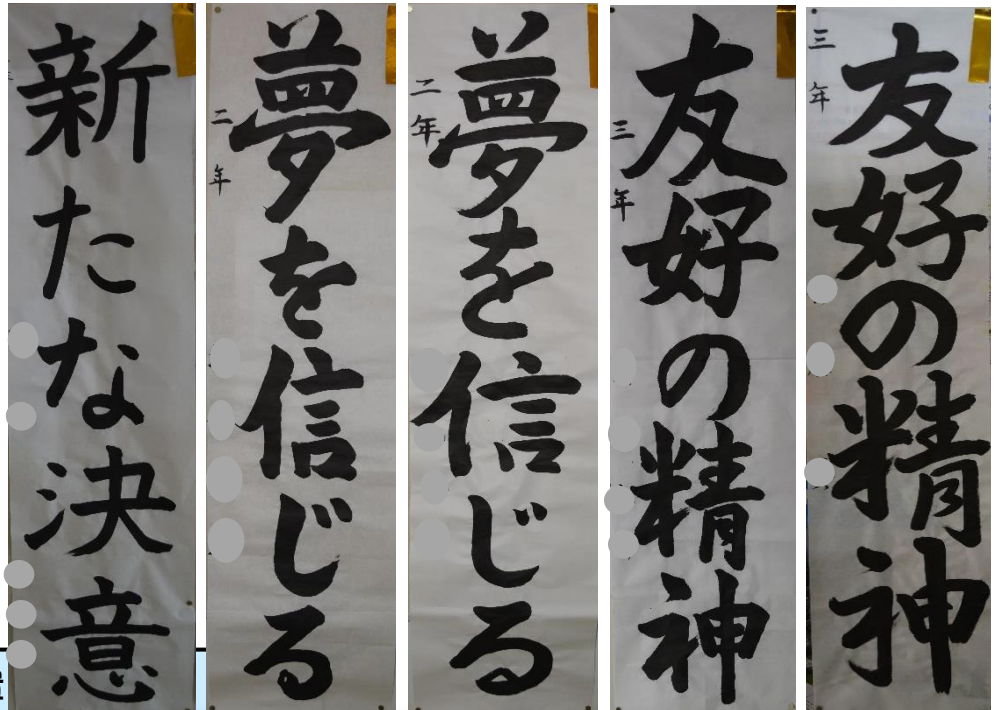 新たな決意
夢を信じる
二年
夢を信じる
二年
友好の精神
三年
友好の精神
三年